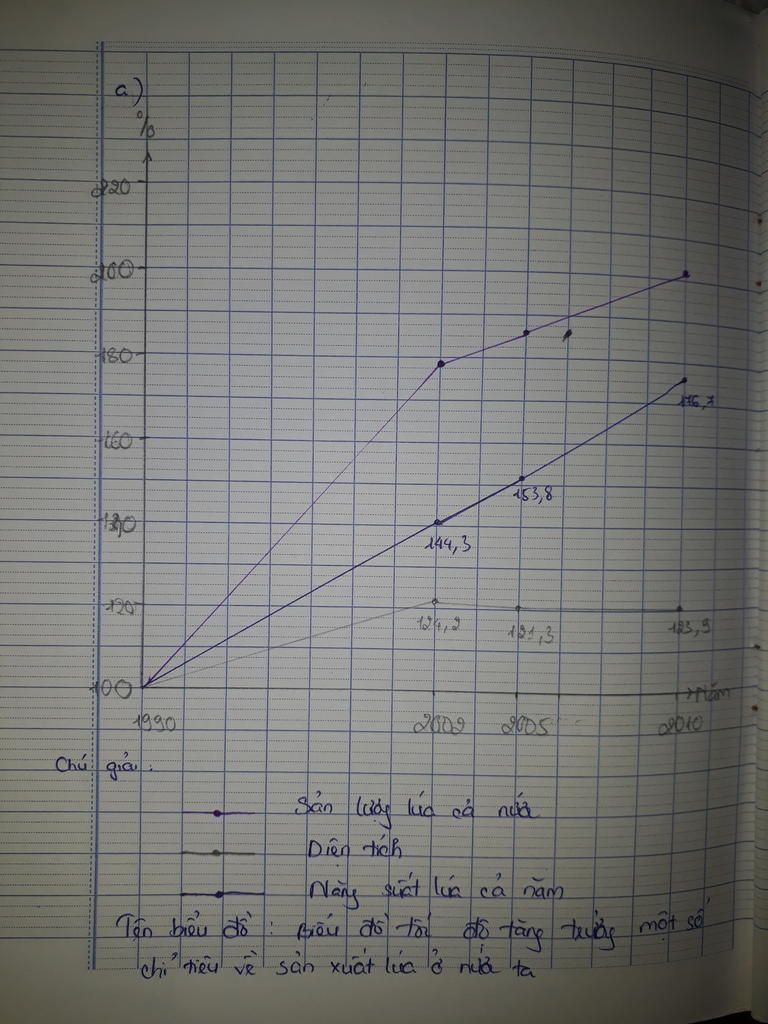 a)
%
220
200
180
160
140
120
100
176,7
153,8
144,3
124,2 121,3 123,9
Năm
1990 2002 2005 2010
Chú giải :
Sản lượng lúa cả nước
Diện tích
Năng suất lúa cả năm
Tên biểu đồ : Biểu đồ tốc độ tăng trưởng một số
chỉ tiêu về sản xuất lúa ở nước ta